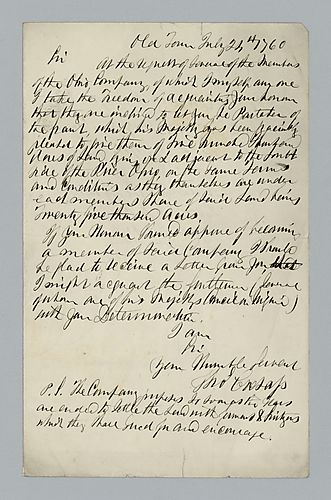 Old Town July 24th 1760
Sir
At the request of Several of the Members
of the Ohio Company, of which I myself am one
I take the Freedom of acquainting your honour
that they are inclined to let you be Partaker of
the grant, which his Majesty has been graciously
pleased to give them of Five hundred Thousand
Acres of Land, lying on & adjacent to the South
side of the River Ohio, on the same Terms
and Conditions as they themselves are under
each members Share of said Land being
Twenty five thousand Acres.
If your Honour should approve of becoming
a member of Said Company I should
be glad to receive a Letter from you that
I might acquaint the gentlemen (several
of whom are of his Majestys Council in Virginia)
with your Determination.
I am
Sir
Your Humble Servant
Tho Cresap
P.S. The Company proposes so soon as the Wars
are ended to settle the Land with Germans &
which they have sued for and encourage.